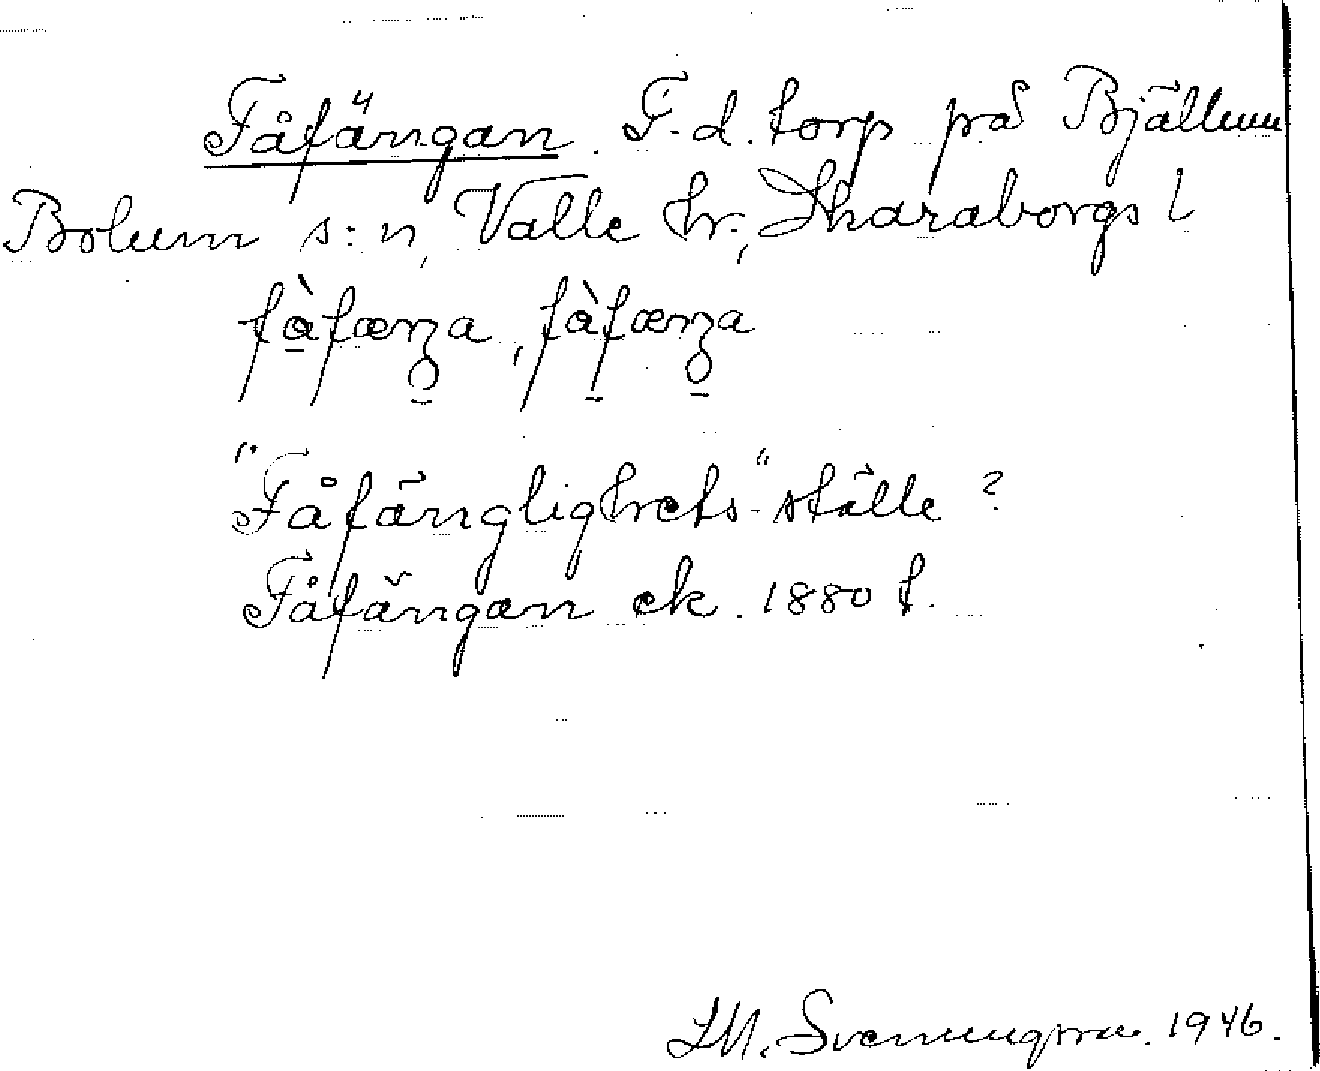 Fåfängan. F.d. torp på Bjällum
Bolum s:n, Valle hr., Skaraborgs l
fàfæŋa, fàfæŋa
"Fåfänglighets"-ställe?
Fåfängan ek. 1880 t.
Svenungsson. 1946.